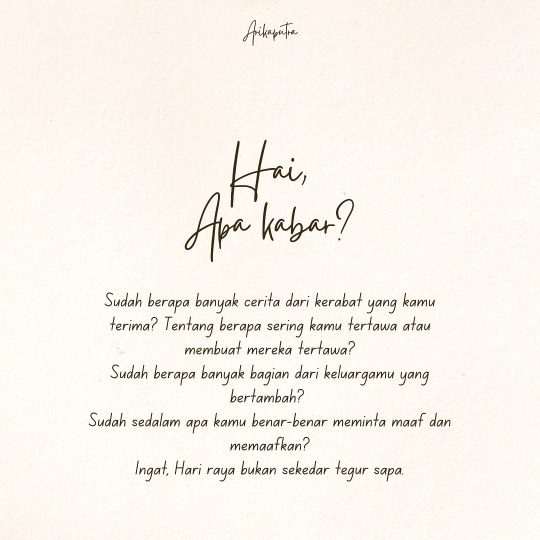 Arikaputra
Hai,
Apa kabar?
Sudah berapa banyak cerita dari kerabat yang kamu
terima? Tentang berapa sering kamu tertawa atau
membuat mereka tertawa?
Sudah berapa banyak bagian dari keluargamu yang
bertambah?
Sudah sedalam apa kamu benar-benar meminta maaf dan
memaafkan?
Ingat, Hari raya bukan sekedar tegur sapa.